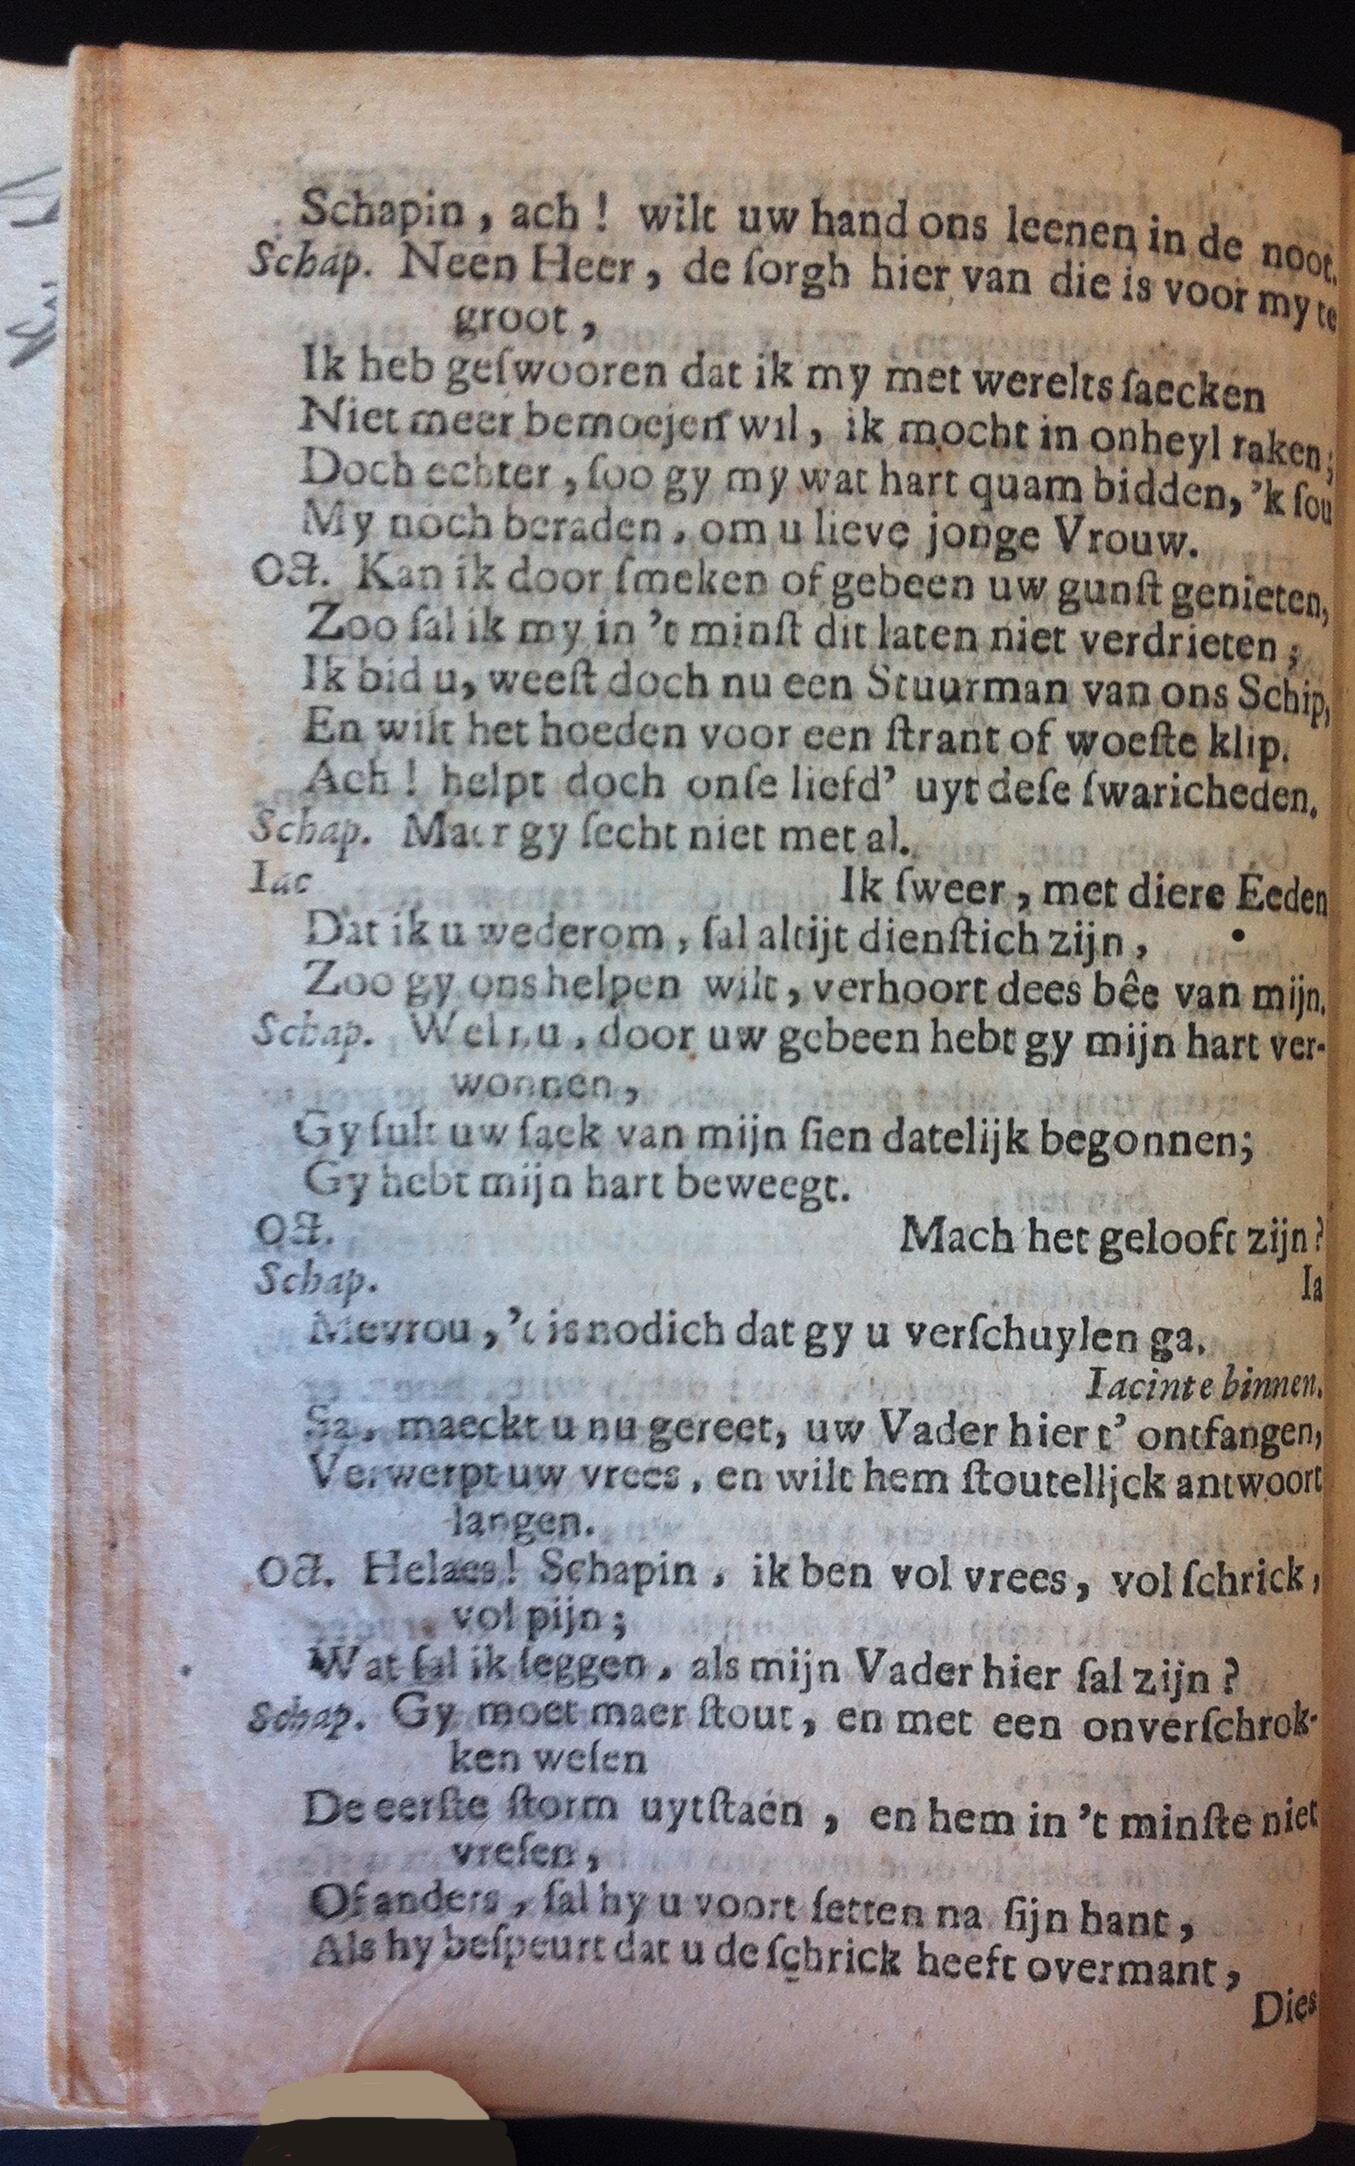 Schapin, ach! wilt uw hand ons leenen in de noot.
Schap. Neen Heer, de ſorgh hier van die is voor my te
groot,
Ik heb geſwooren dat ik my met werelts ſaecken
Niet meer bemoejen wil, ik mocht in onheyl raken;
Doch echter, ſoo gy my wat hart quam bidden, 'k ſou
My noch beraden, om u lieve jonge Vrouw.
Oct. Kan ik door ſmeken of gebeen uw gunſt genieten,
Zoo ſal ik my in 't minſt dit laten niet verdrieten;
Ik bid u, weeſt doch nu een Stuurman van ons Schip,
En wilt het hoeden voor een ſtrant of woeſte klip.
Ach! helpt doch onſe liefd' uyt deſe ſwaricheden.
Schap. Maer gy ſecht niet met al.
Iac Ik ſweer, met diere Eeden
Dat ik u wederom, ſal altijt dienſtich zijn,
Zoo gy ons helpen wilt, verhoort dees bêe van mijn.
Schap. Wel nu, door uw gebeen hebt gy mijn hart ver-
wonnen,
Gy ſult uw ſack van mijn ſien datelijk begonnen;
Gy hebt mijn hart beweegt.
Oct. Mach het gelooft zijn?
Schap. Ia
Mevrou, 't is nodich dat gy u verſchuylen ga.
Iacinte binnen.
Sa, maeckt u nu gereet, uw Vader hier t' ontfangen,
Verwerpt uw vrees, en wilt hem ſtoutelijck antwoort
langen.
Oct. Helaes! Schapin, ik ben vol vrees, vol ſchrick,
vol pijn;
Wat ſal ik ſeggen, als mijn Vader hier ſal zijn?
Schap. Gy moet maer ſtout, en met een onverſchrok-
ken weſen
De eerſte ſtorm uytſtaen, en hem in 't minſte niet
vreſen,
Of anders, ſal hy u voort ſetten na ſijn hant,
Als hy beſpeurt dat u de ſchrick heeft overmant,
Dies